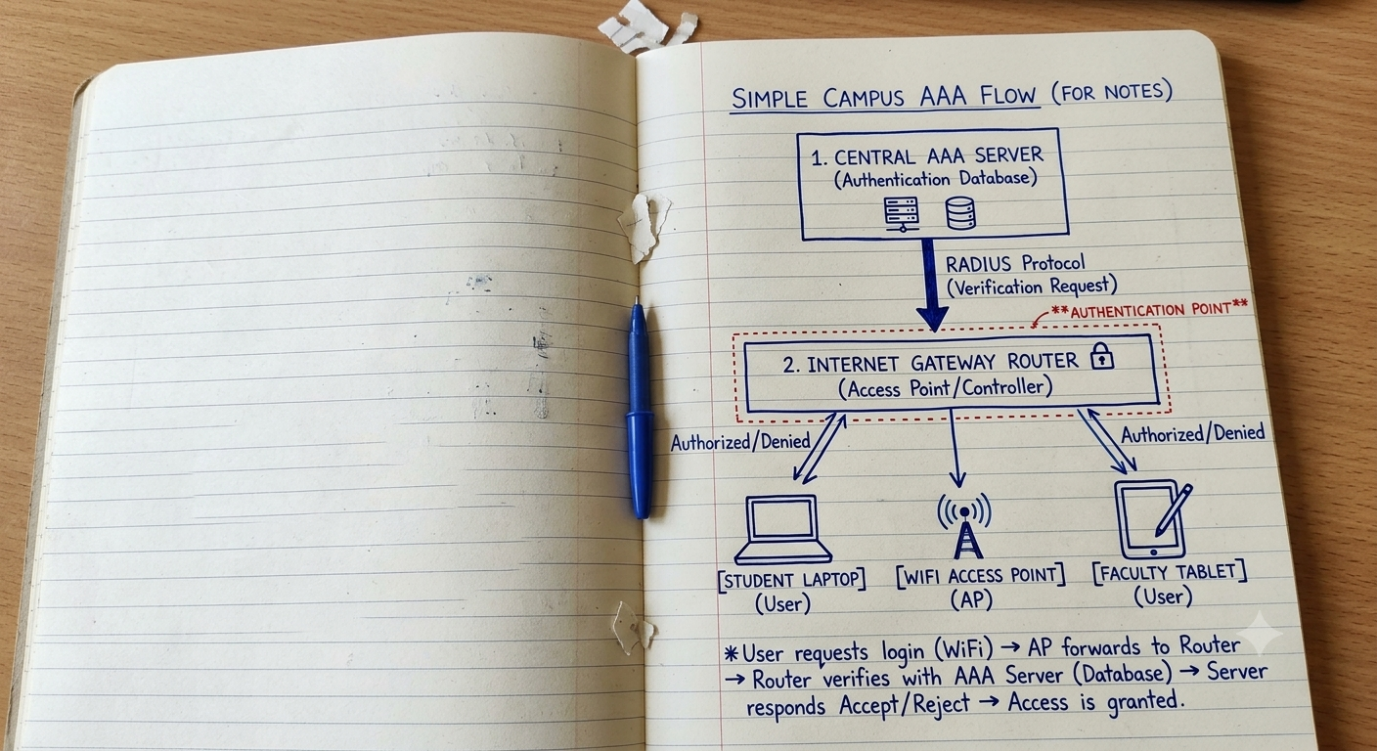 SIMPLE CAMPUS AAA FLOW (FOR NOTES)
1. CENTRAL AAA SERVER
(Authentication Database)
RADIUS Protocol
(Verification Request)
**AUTHENTICATION POINT**
2. INTERNET GATEWAY ROUTER
(Access Point/Controller)
Authorized/Denied
Authorized/Denied
[STUDENT LAPTOP]
(User)
[WIFI ACCESS POINT]
(AP)
[FACULTY TABLET]
(User)
*User requests login (WiFi) → AP forwards to Router
→ Router verifies with AAA Server (Database) → Server
responds Accept/Reject → Access is granted.